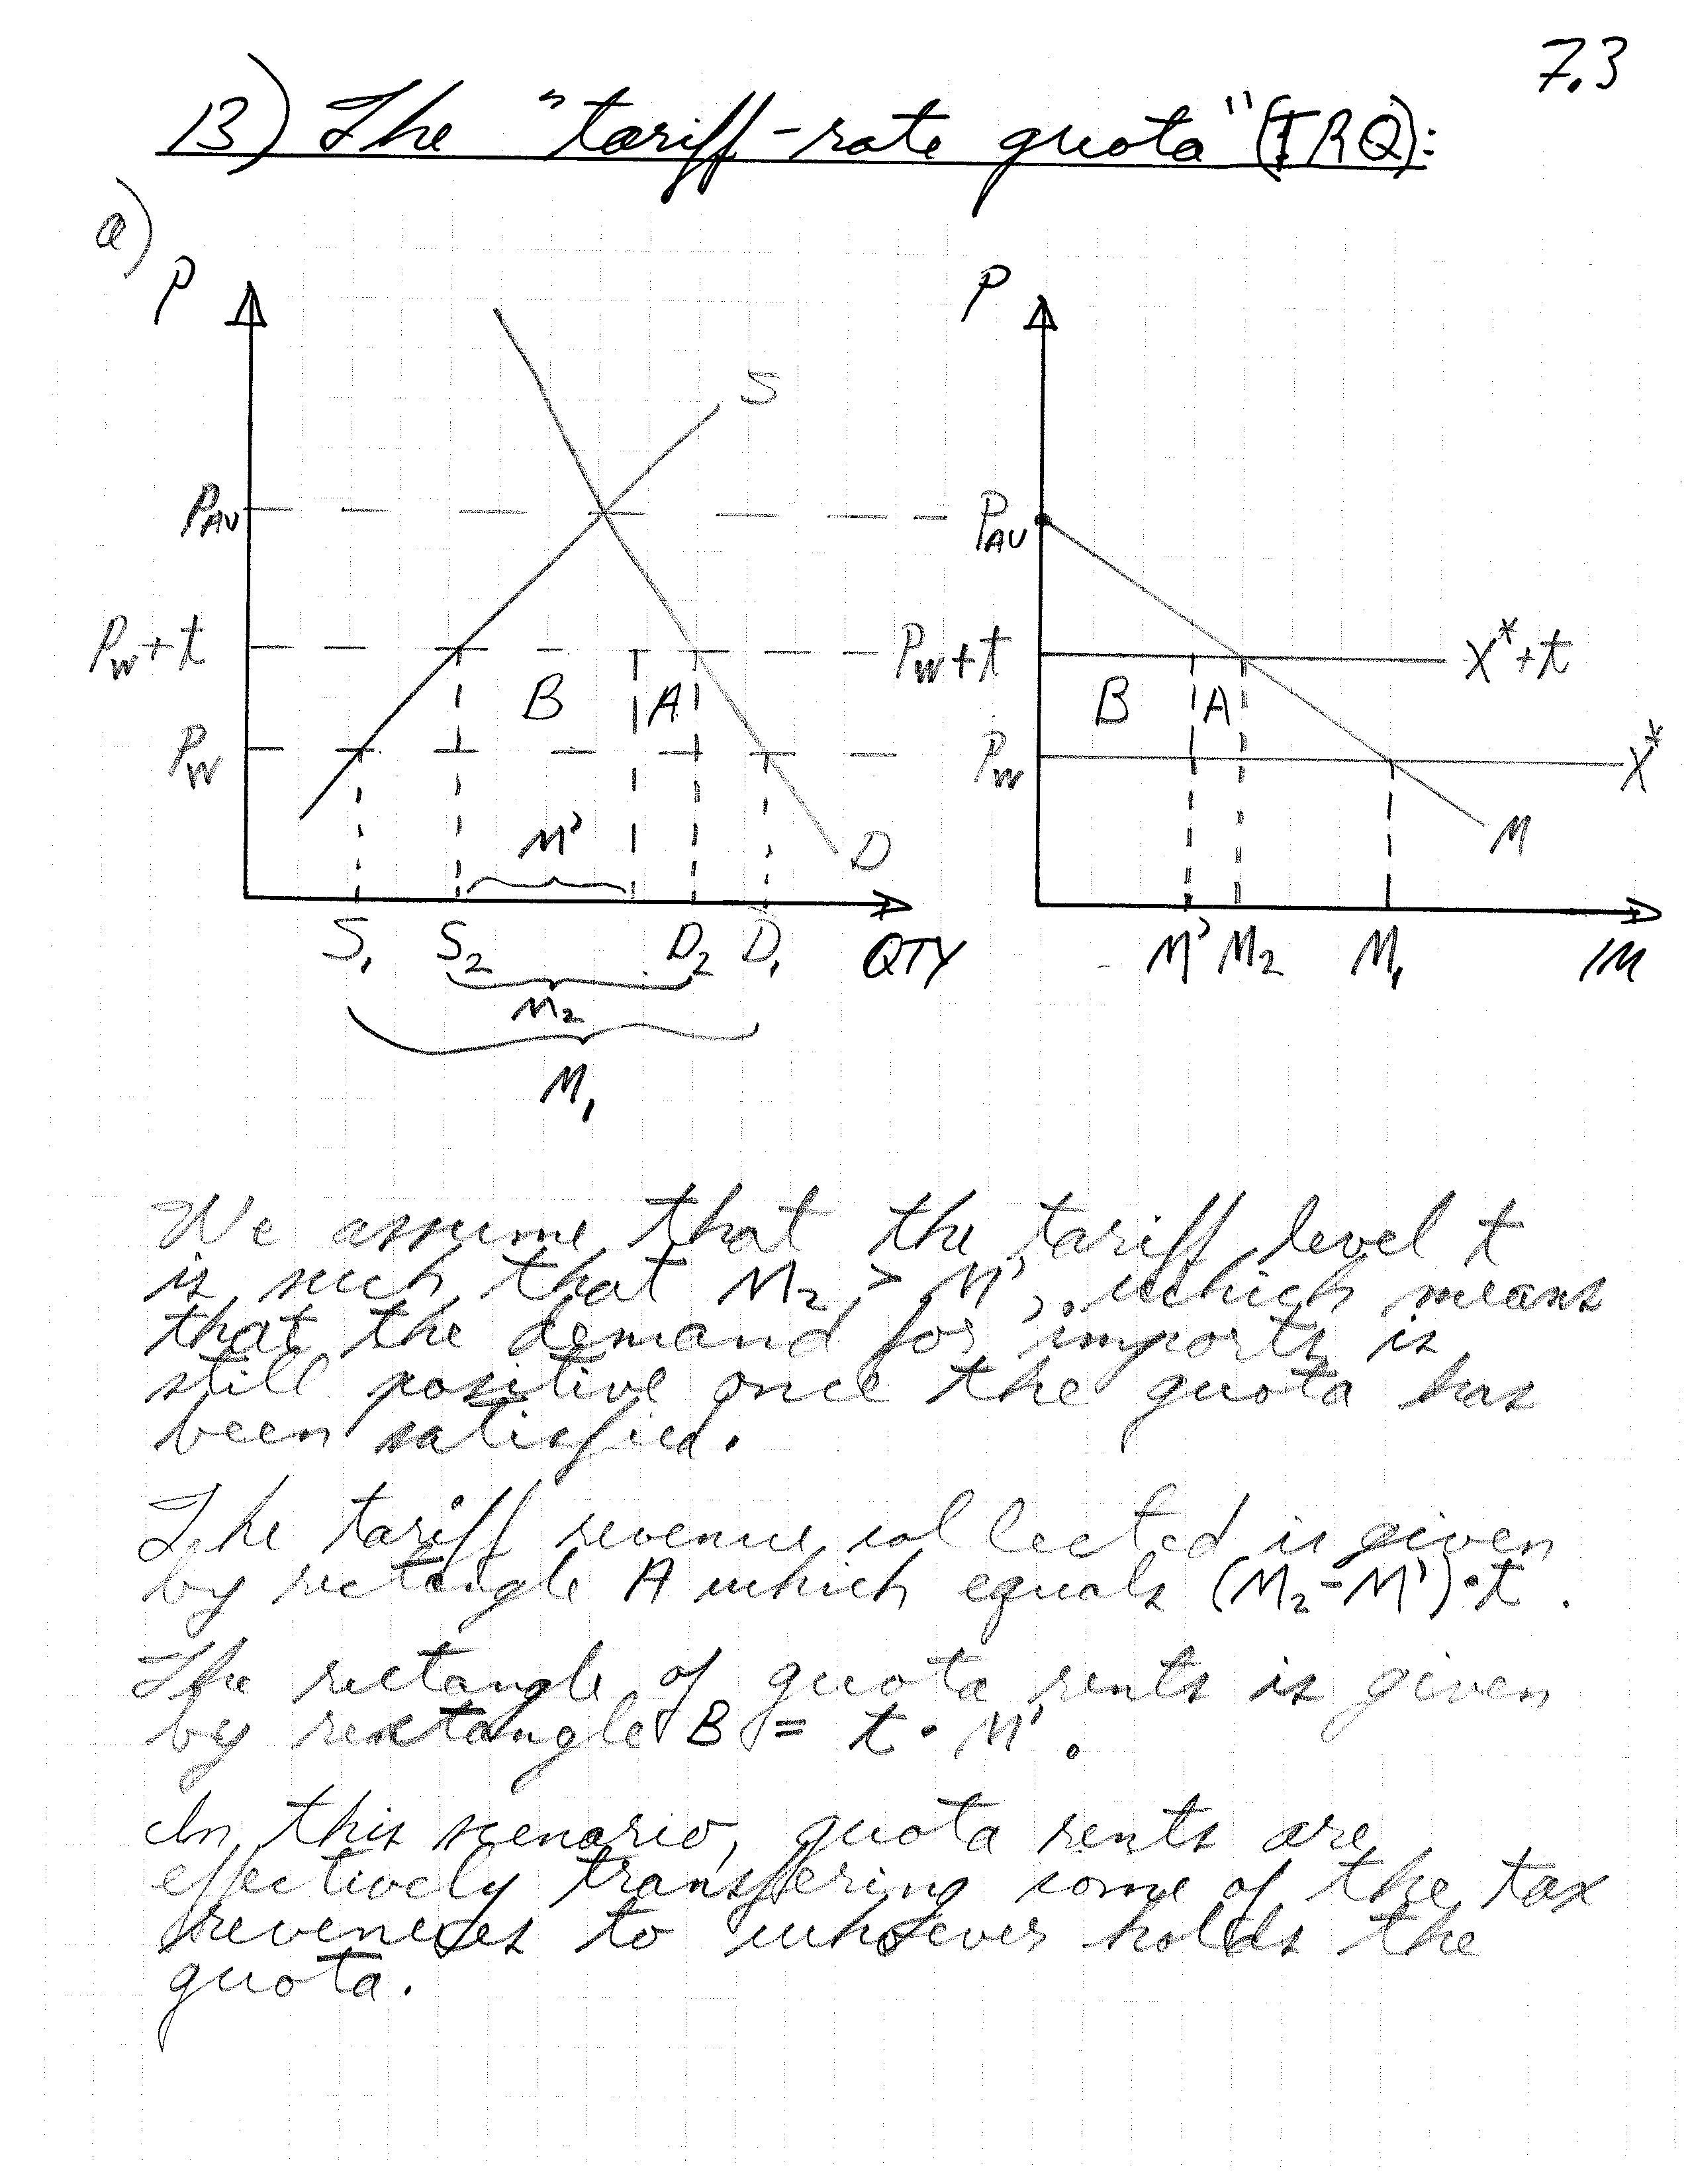 7.3
13) The "tariff-rate quota" (TRQ):
a)
P
P
S
PAU
PAU
Pw+t
Pw+t
X*+t
B
A
B
A
Pw
Pw
X*
M'
D
M
S1
S2
D2
D1
QTY
M'
M2
M1
IM
M2
M1
We assume that the tariff level t
is such that M2 > M', which means
that the demand for imports is
still positive once the quota has
been satisfied.
The tariff revenue collected is given
by rectangle A which equals (M2-M')·t.
The rectangle of quota rents is given
by rectangle B = t·M'.
In this scenario, quota rents are
effectively transferring some of the tax
revenues to whoever holds the
quota.